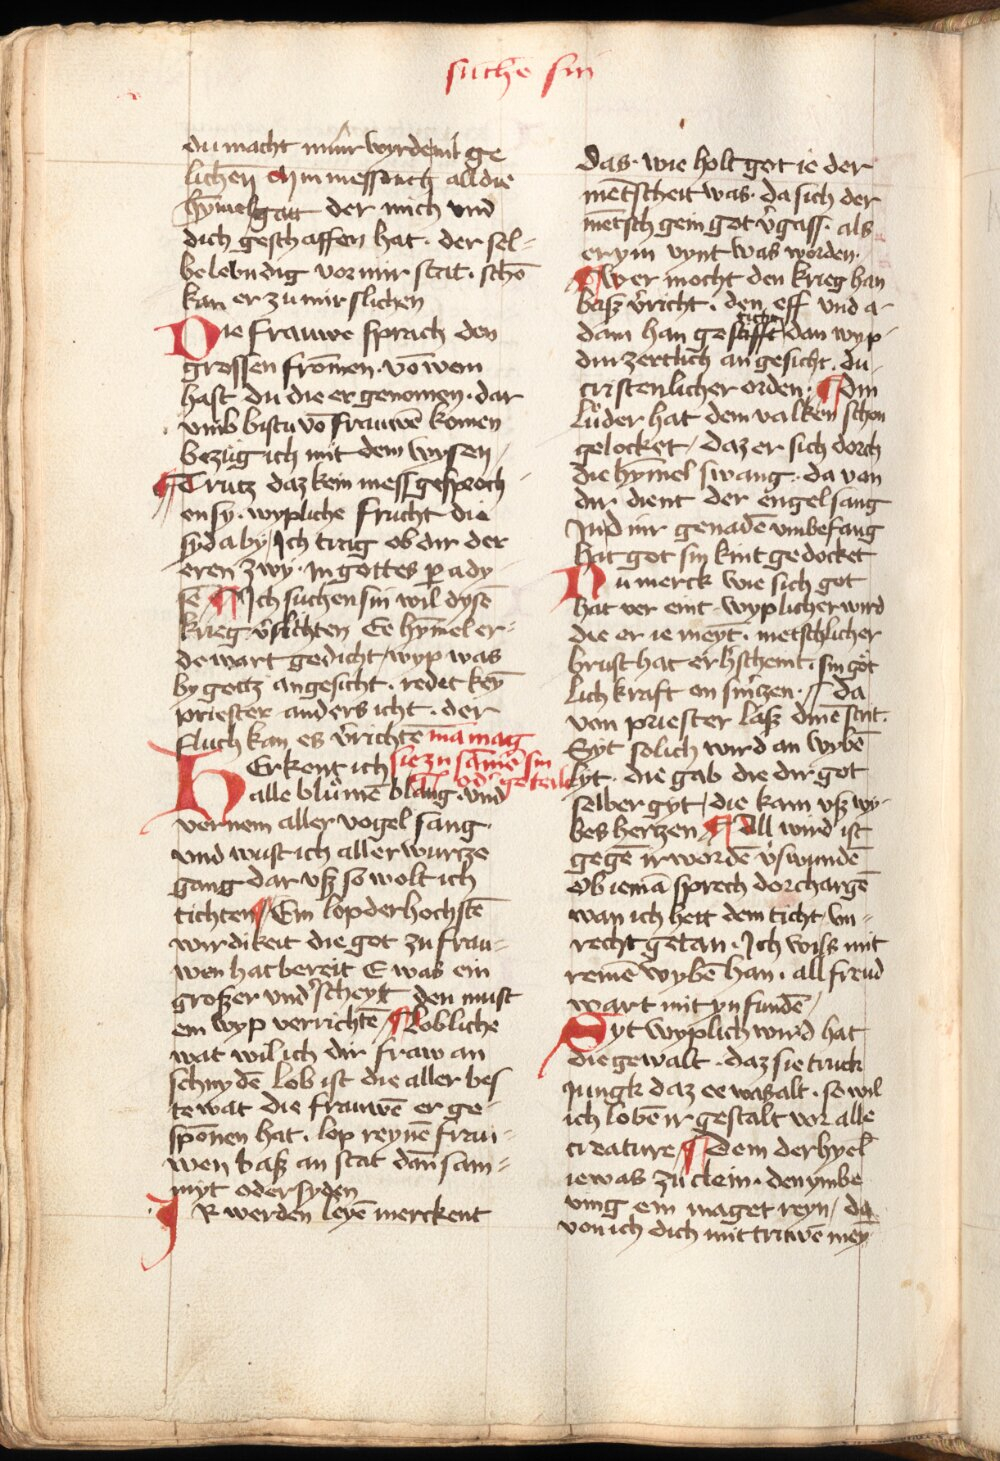 suchē sin
du macht mīnr wyrde mit ge
lichen ch in messinck all die
hȳmel gatt der mich vnd
dich geschaffen hat · der sel-
be lebndig vor mir stat · schō
kan er zu mir slichen
Die frauwe sprach den
grossen fromen · vō wem
hast du die er genomen · dar
vmb bistu vō frauwē komen
bezüg ich mit dem wysen /
¶ Trutz daz kein mess gesproch
en sy · wypliche frucht die
syd a by / Ich trag ob dir der
eren zwy · In gottes pady-
sē ¶ Ich suchen sin wil dysē
krieg v̓slichten Ee hȳmel er-
de wart gedicht / wyp was
by gottz angesicht · redet keȳ
priester anders icht · der
fluch kan es v̓richtē mā mag
Het kent ich sie zu sāmē sin
alle blůmē blang · vnd odˀ geteilt
vernem aller vogel sang ·
vnd wust ich aller wurcze
gang dar vsz so wolt ich
tichten ¶ Ein lop der hochstē
wirdikeit die got zu frau-
wen hat bereit E was ein
groszer vndˀscheyt den must
ein wyp verrichtē / ¶ Lobliche
wat wil ich dir fraw an
schnydē lob ist die aller bes
te wat die frauwē er ge-
sponen hat · lop reynē frau-
wen basz an stat dan sam-
myt oder syden
IR werden leyē merckent
das · wie holt got ie der
mētscheit was · da sich der
mētsch gein got v̓gass · als
er ym vynt was worden ·
¶ Wer mocht den krieg han
basz v̓richt · den eff vnd a-
dam han gestifft dan wyp
din zertlich angesicht · du
cristenlicher orden · ¶ Din
lůder hat dem valken schon
gelocket / daz er sich dorch
die hȳmel swang · da von
dir dient der engel sang
Ind mir genadē vmbefang
hat got sin kint gedocket
Nu merck wie sich got
hat ver eint · wyplicher wird
die er ie meyt · metschlicher
brust hat er bˀscheint · sin göt
lich kraft on sinˀzen · ¶ da
von priester lasz dinē strit ·
Syt solich wird an wybē
lyt · die gab die dir got
selber gyt / die kam vsz wy-
bes hertzen ¶ All wird ist
gegē ir wordē v̓swundē
Ob iemā sprech dorchargē
wan ich hett dem ticht / vn-
recht getan · Ich wils mit
reinē wybē han · all freud
wart mit yn fundē /
Syt wyplich wird hat
die gewalt · daz sie truck
Jungk daz ee was alt · so wil
ich lobē ir gestalt vor alle
creature ¶ Dem der hyel
ie was zu clein · den vmbe
ving ein maget reyn / da
von ich dich mit truwē mey